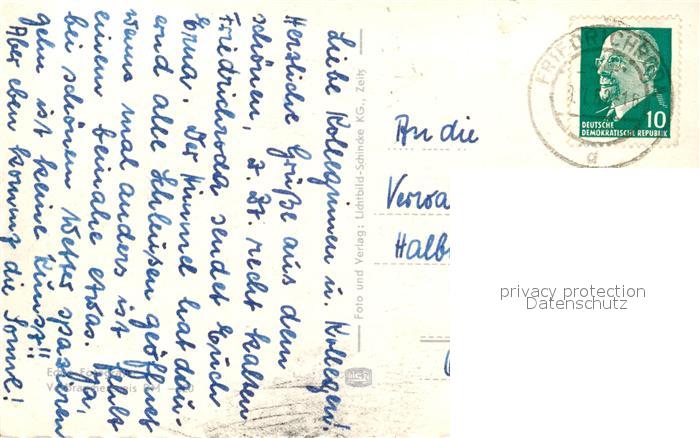 Liebe Kolleginnen u. Kollegen!
Herzliche Grüße aus dem
schönen, z. Zt. recht kalten
Friedrichroda sendet Euch
Erna. Der Himmel hat dau-
ernd alle Schleusen geöffnet
wenns mal anders ist fehlt
einem beinahe etwas. Na ja,
bei schönem Wetter spazieren
gehn ist keine Kunst!!
Aber eben kommt die Sonne!
Foto und Verlag: Lichtbild-Schincke KG., Zeitz
Echte Foto
An die
Verwa
Halb
FRIEDRICHRODA
a
10
DEUTSCHE
DEMOKRATISCHE REPUBLIK
privacy protection
Datenschutz